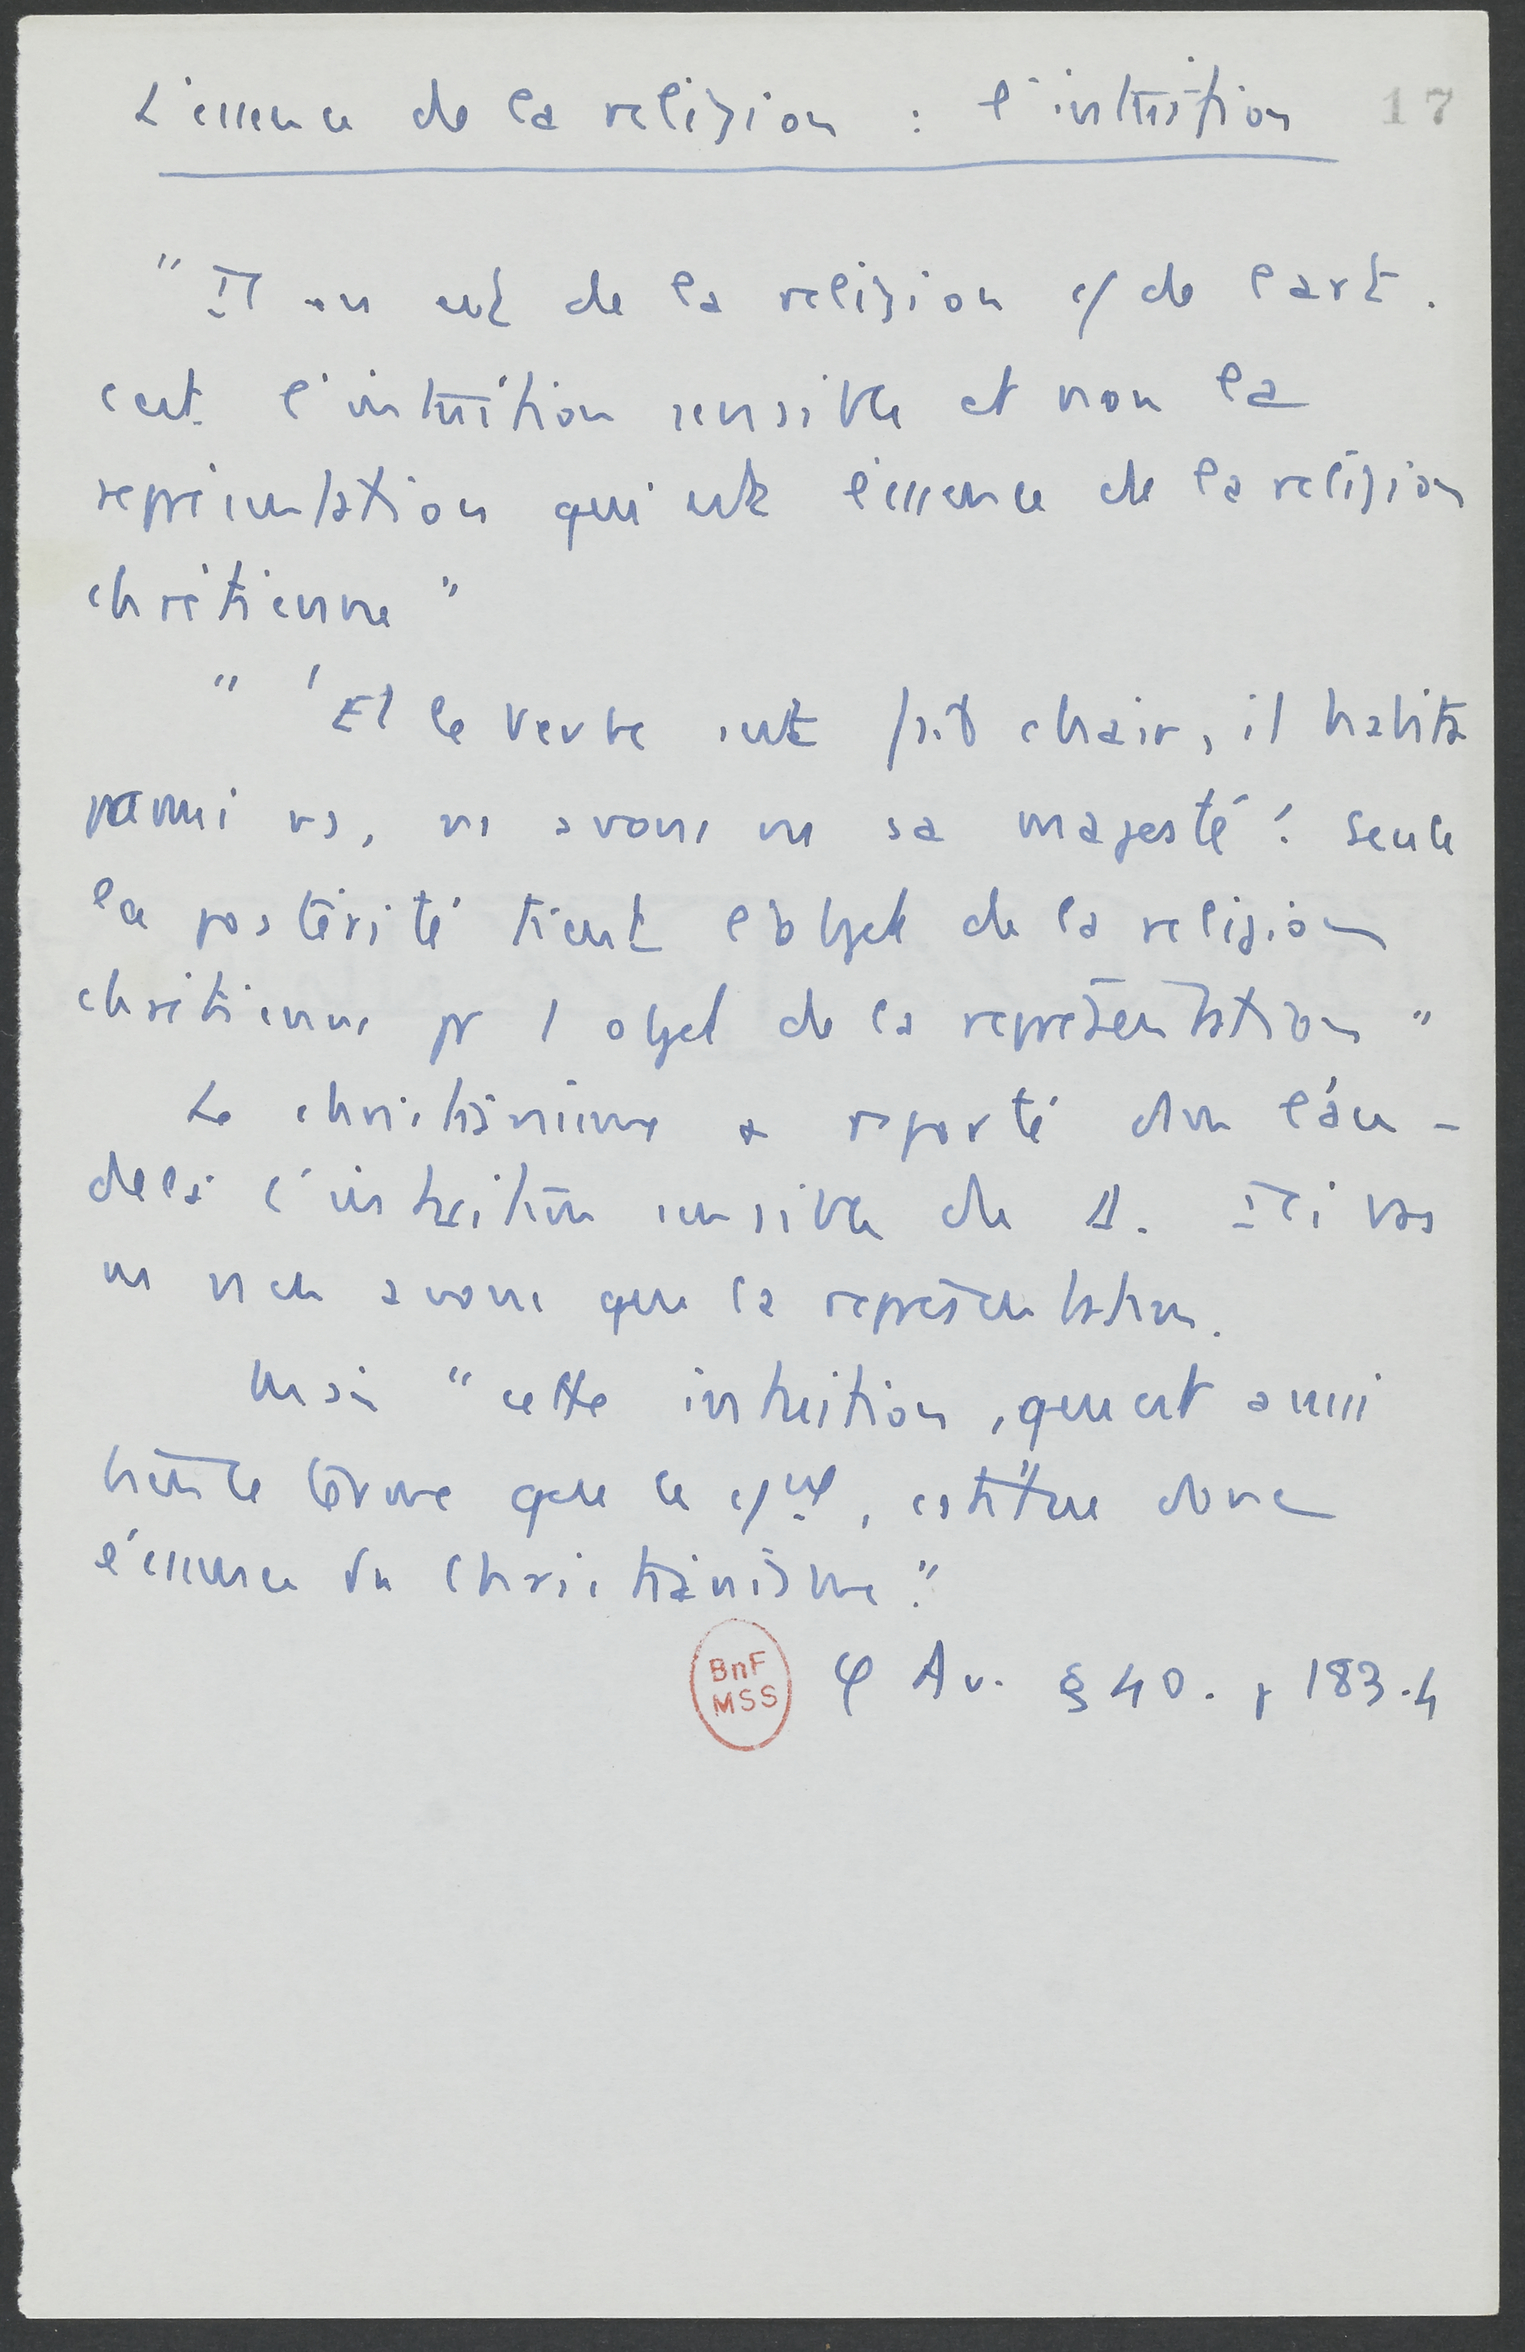 L'essence de la religion : l'intuition
17
"Il en est de la religion c/ de l'art.
c'est l'intuition sensible et non la
représentation qui est l'essence de la religion
chrétienne"
" 'Et le Verbe s'est fait chair, il habita
parmi ns, ns avons vu sa majesté': seule
la postérité tient l'objet de la religion
chrétienne pr l'objet de la représentation"
Le christianisme a reporté dans l'au-
delà l'intuition sensible de D. Ici bas
ns n'en avons que la représentation.
Mais "cette intuition, qui est aussi
le terme que le , cstitue donc
l'essence du Christianisme."
BnF
MSS
φ Av. § 40. p 183.4